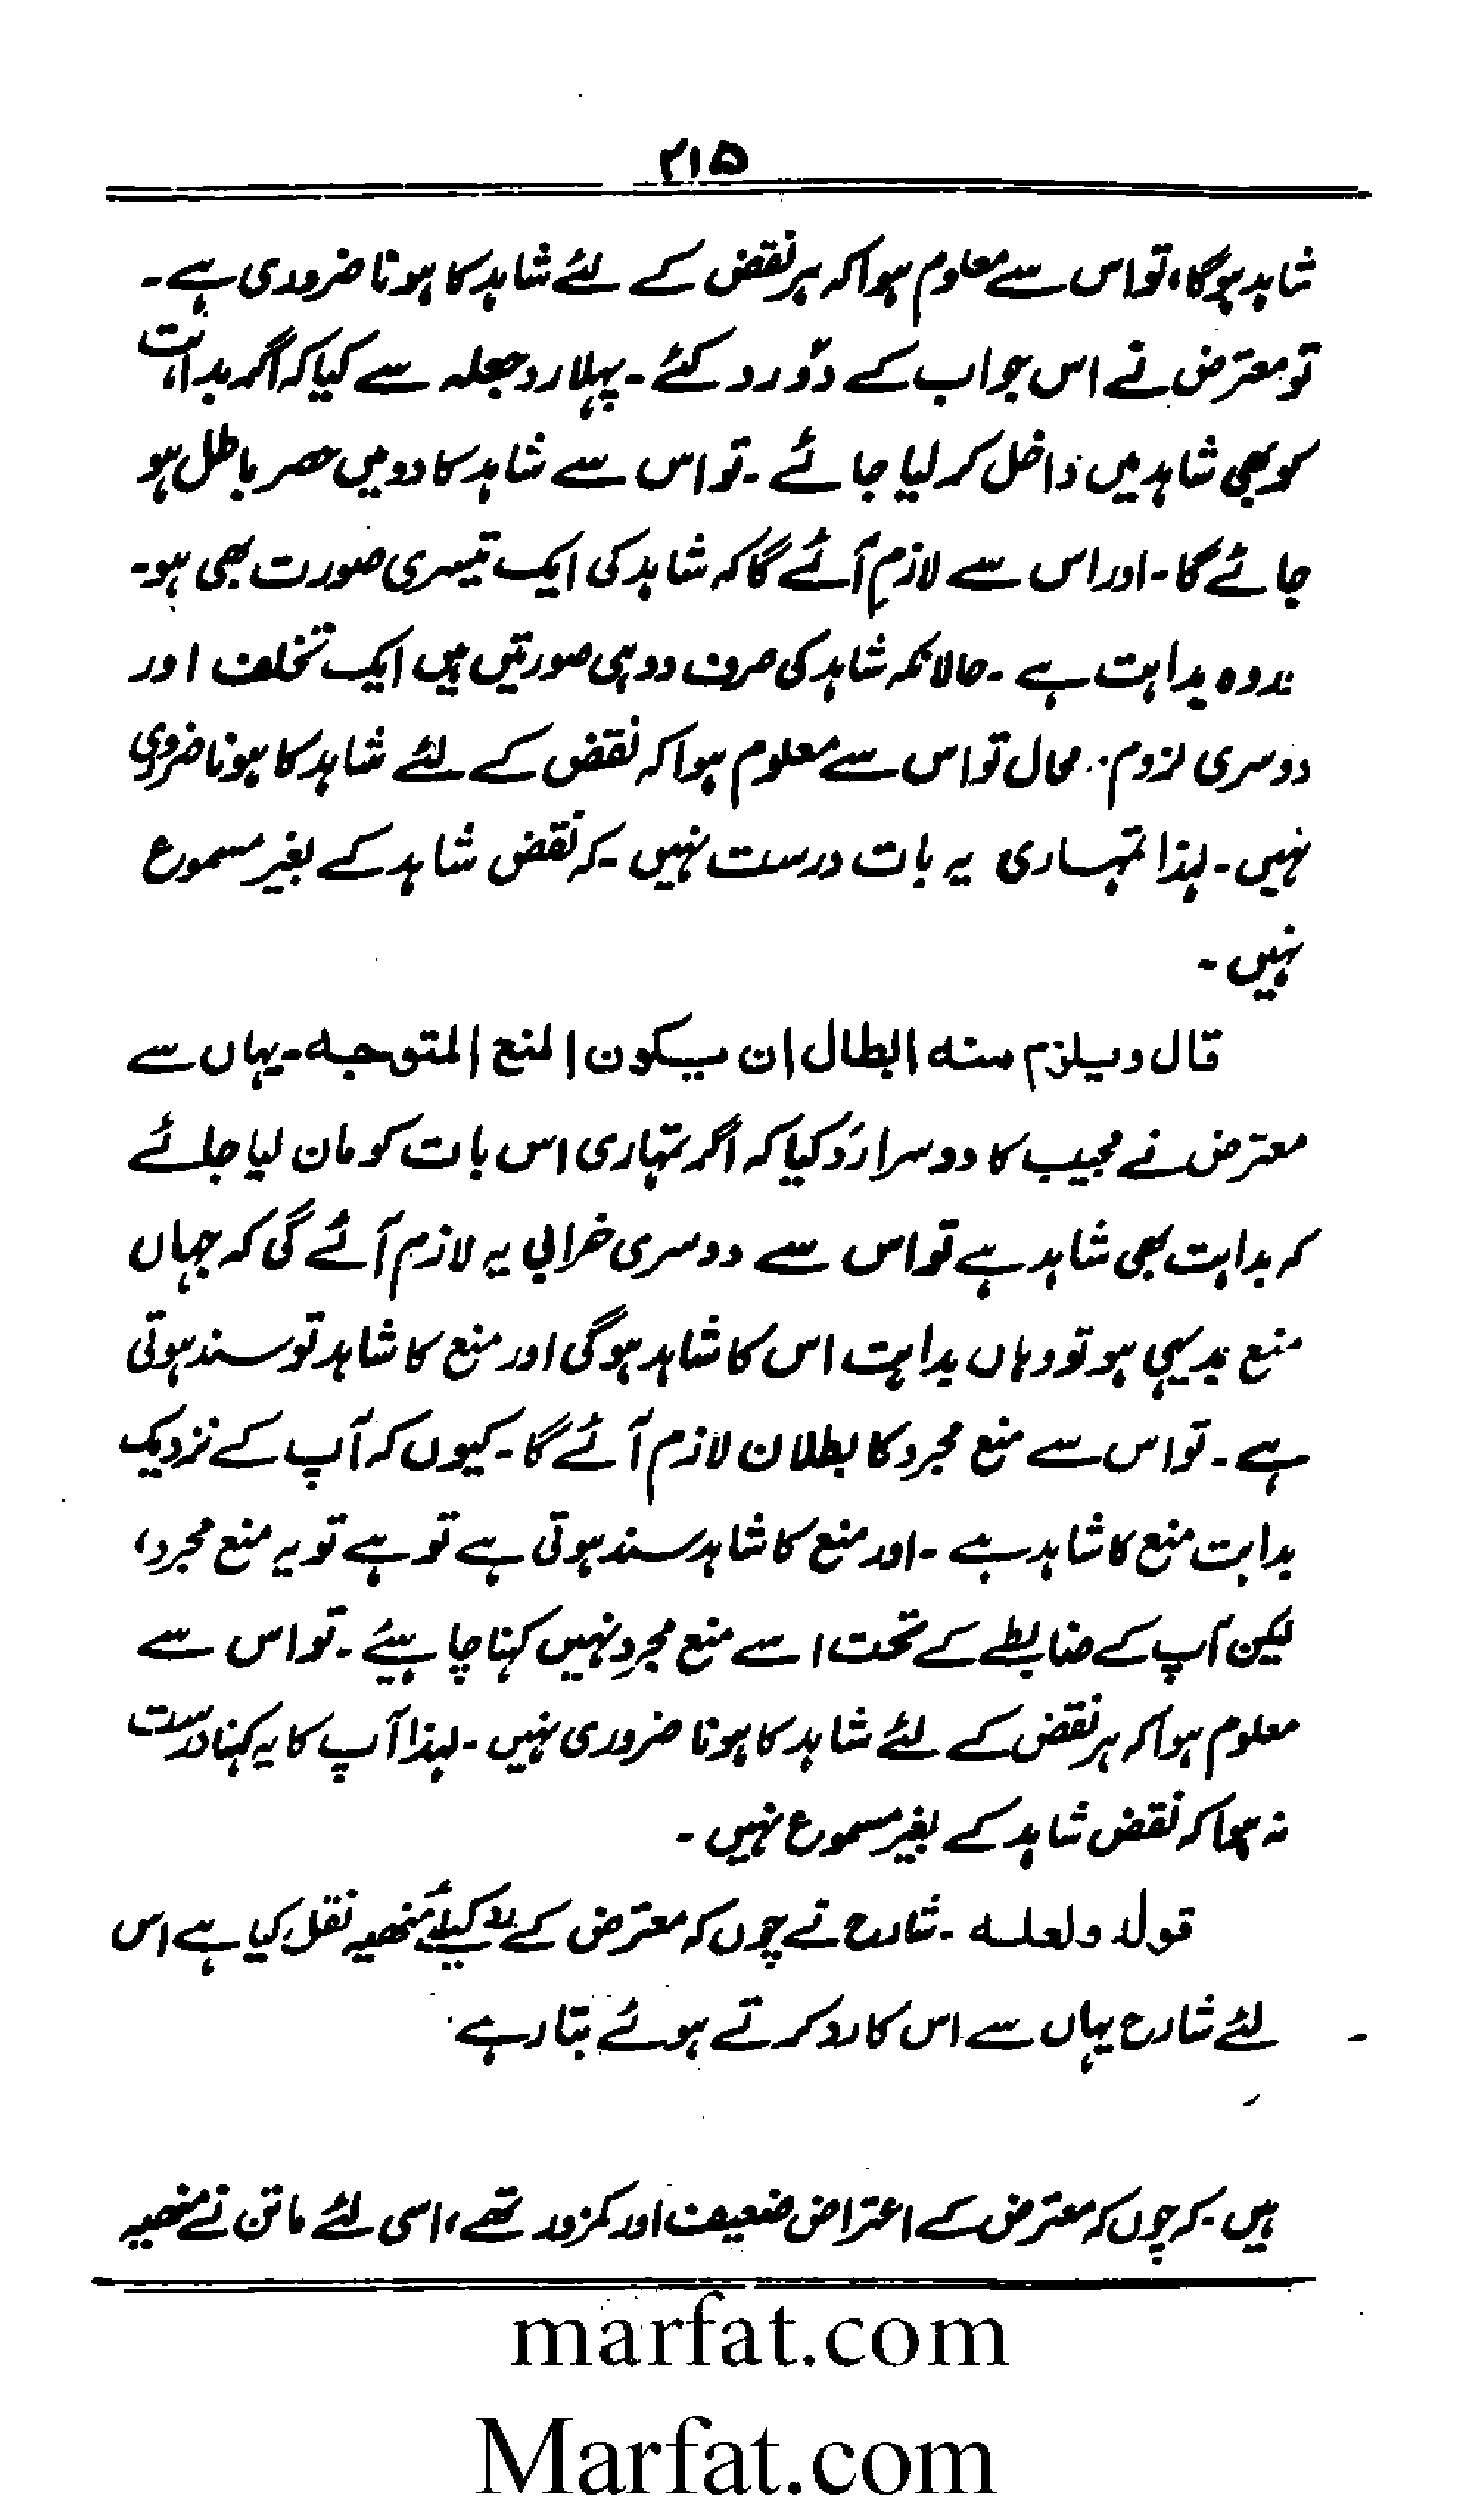 ۲۱۵
شاہد ہوگا، تو اس سے معلوم ہوا کہ ہر نقض کے لئے شاہد کا ہونا ضروری ہے۔
تو معترض نے اس جواب کے دو رد کئے۔ پہلا رد جعلہ سے کیا کہ اگر بداہت
کو بھی شاہد میں داخل کر لیا جائے۔ تو اس سے شاہد کا دو میں حصر باطل ہو
جائے گا۔ اور اس سے لازم آئے گا کہ شاہد کی ایک تیسری صورت بھی ہو۔
وہ بداہت ہے۔ حالانکہ شاہد کی صرف دو ہی صورتیں ہیں ایک تخلف اور
دوسری لزوم محال تو اس سے معلوم ہوا کہ نقض کے لئے شاہد کا ہونا ضروری
نہیں۔ لہذا تمہاری یہ بات درست نہیں۔ کہ نقض شاہد کے بغیر مسموع
نہیں۔
قال ویلزم منہ ابطال ان یکون المنع المتوجہ۔ یہاں سے
معترض نے مجیب کا دوسرا رَد کیا کہ اگر تمہاری اس بات کو مان لیا جائے
کہ بداہت بھی شاہد ہے تو اس سے دوسری خرابی یہ لازم آئے گی کہ جہاں
منع بدیہی ہو تو وہاں بداہت اس کا شاہد ہوگی اور منع کا شاہد تو سند ہوتی
ہے۔ تو اس سے منع مجرد کا بطلان لازم آئے گا۔ کیوں کہ آپ کے نزدیک
بداہت منع کا شاہد ہے۔ اور منع کا شاہد سند ہوتی ہے تو ہے تو یہ منع مجرد،
لیکن آپ کے ضابطے کے تحت اسے منع مجرد نہیں کہنا چاہیئے۔ تو اس سے
معلوم ہوا کہ ہر نقض کے لئے شاہد کا ہونا ضروری نہیں۔ لہذا آپ کا یہ کہنا درست
نہ ہوا کہ نقض شاہد کے بغیر مسموع نہیں۔
قولا ولعلہ۔ شارح نے چوں کہ معترض کے رد کیلئے منھیہ نقل کیا ہے اس
لئے شارح یہاں سے اس کا رد کرتے ہوئے بتا رہے
ہیں۔ کہ چوں کہ معترض کے اعتراض ضعیف اور کمزور تھے، اسی لئے ماتن نے منھیہ
marfat.com
Marfat.com